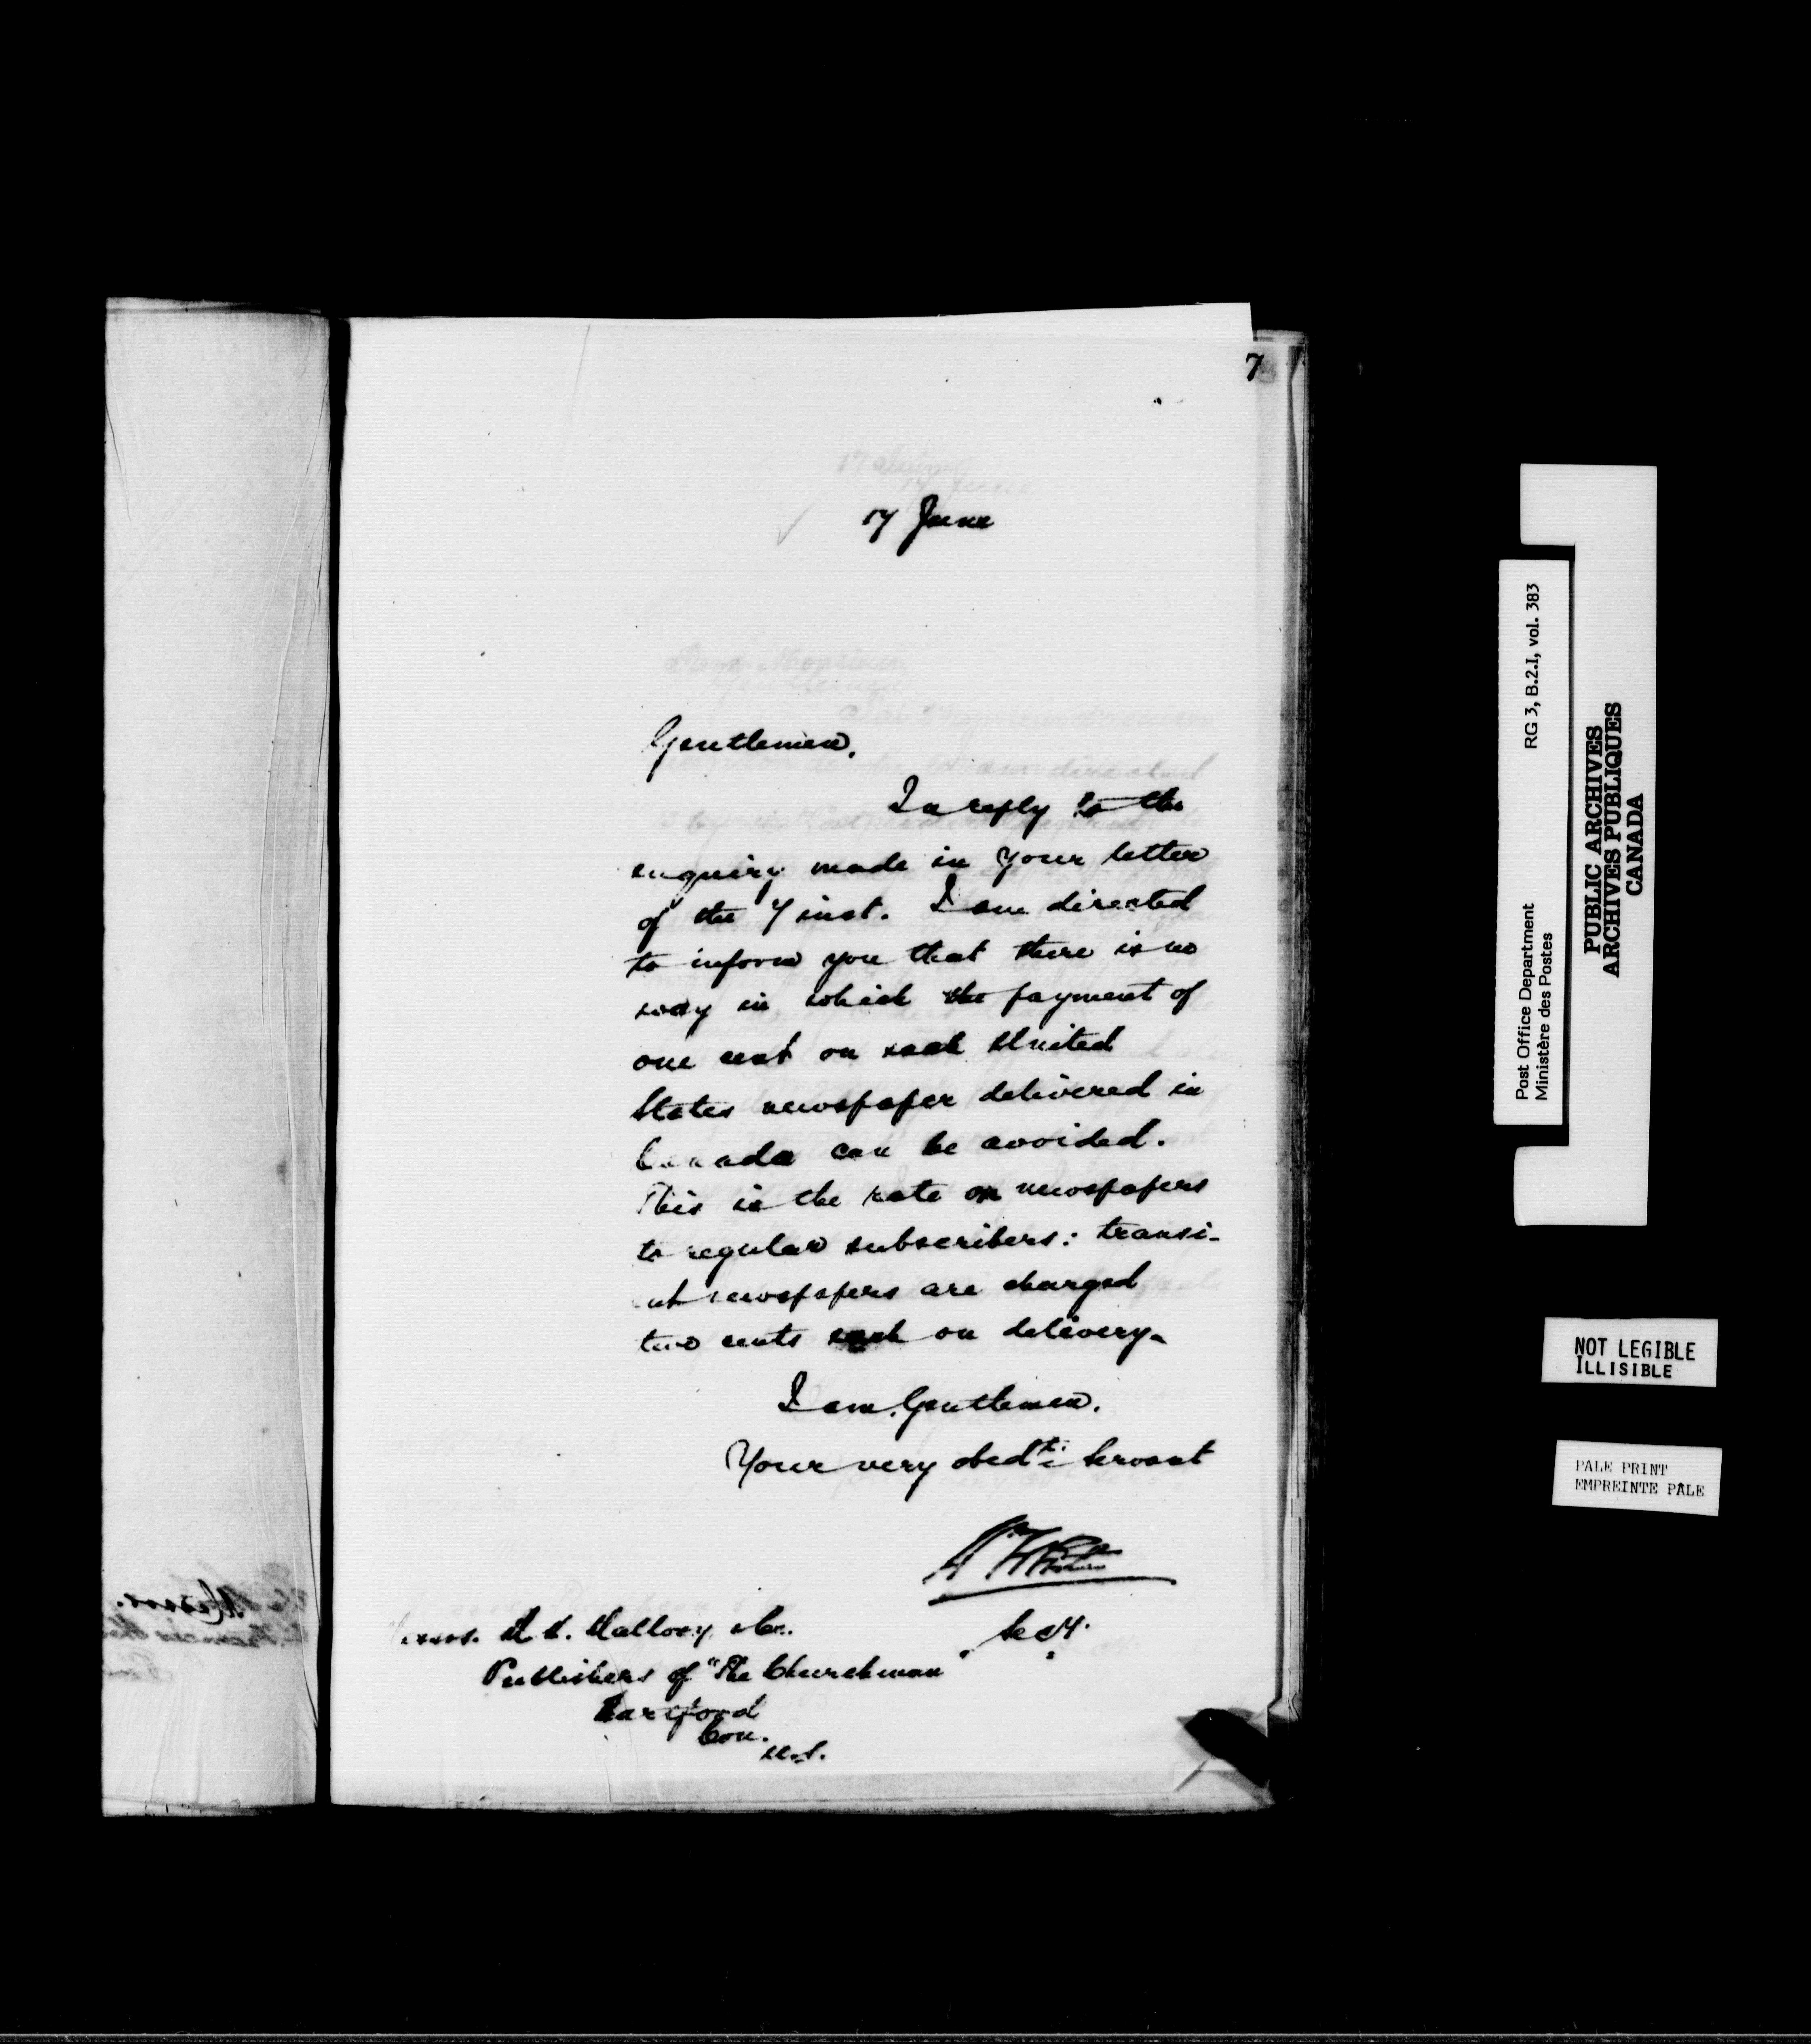 7
17 June
Gentlemen,
In reply to the
enquiry made in your letter
of the 7 inst. I am directed
to inform you that there is no
way in which the payment of
one cent on each United
States newspaper delivered in
Canada can be avoided.
This is the rate on newspapers
to regular subscribers: transi-
ent newspapers are charged
two cents each on delivery.
I am, Gentlemen,
Your very obedt. Servant
Secy.
Messrs. M. H. Mallory & Co.
Publishers of "The Churchman"
Hartford
Con.
U.S.
Post Office Department RG 3, B.2.I, vol. 383
Ministère des Postes
PUBLIC ARCHIVES
ARCHIVES PUBLIQUES
CANADA
NOT LEGIBLE
ILLISIBLE
PALE PRINT
EMPREINTE PÂLE